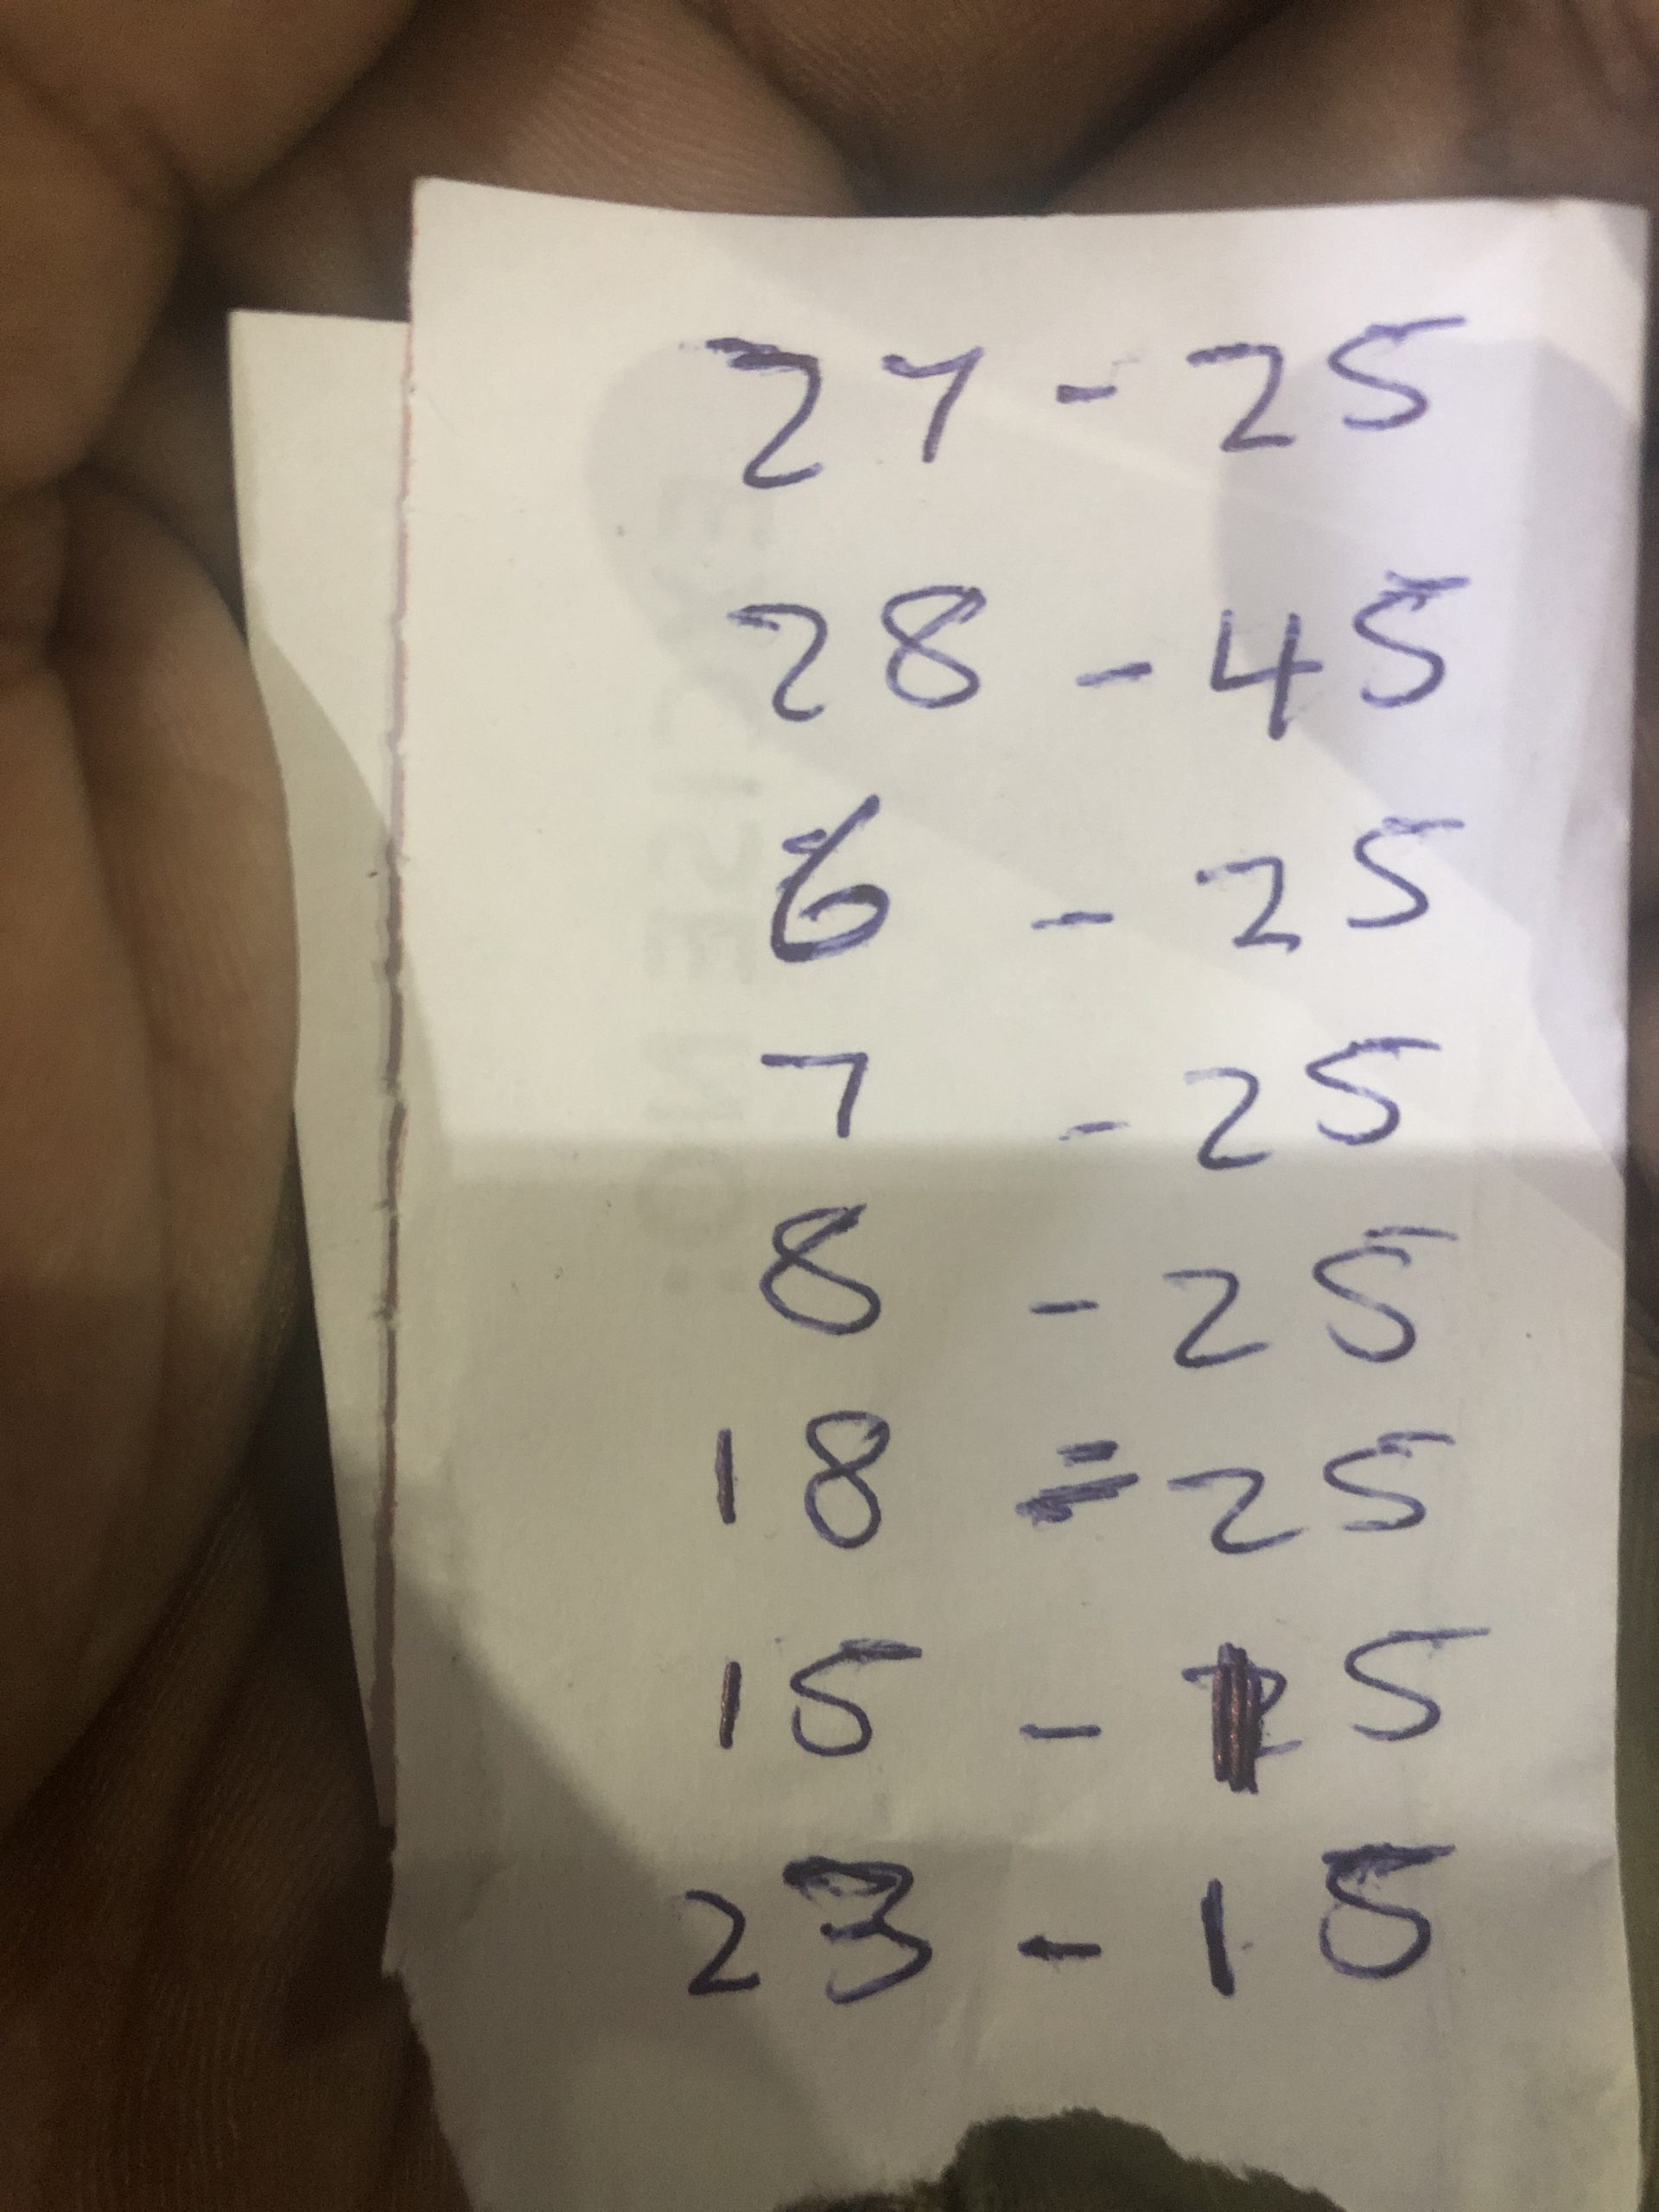 27 - 25
28 - 45
6 - 25
7 - 25
8 - 25
18 = 25
15 - 15
23 - 15